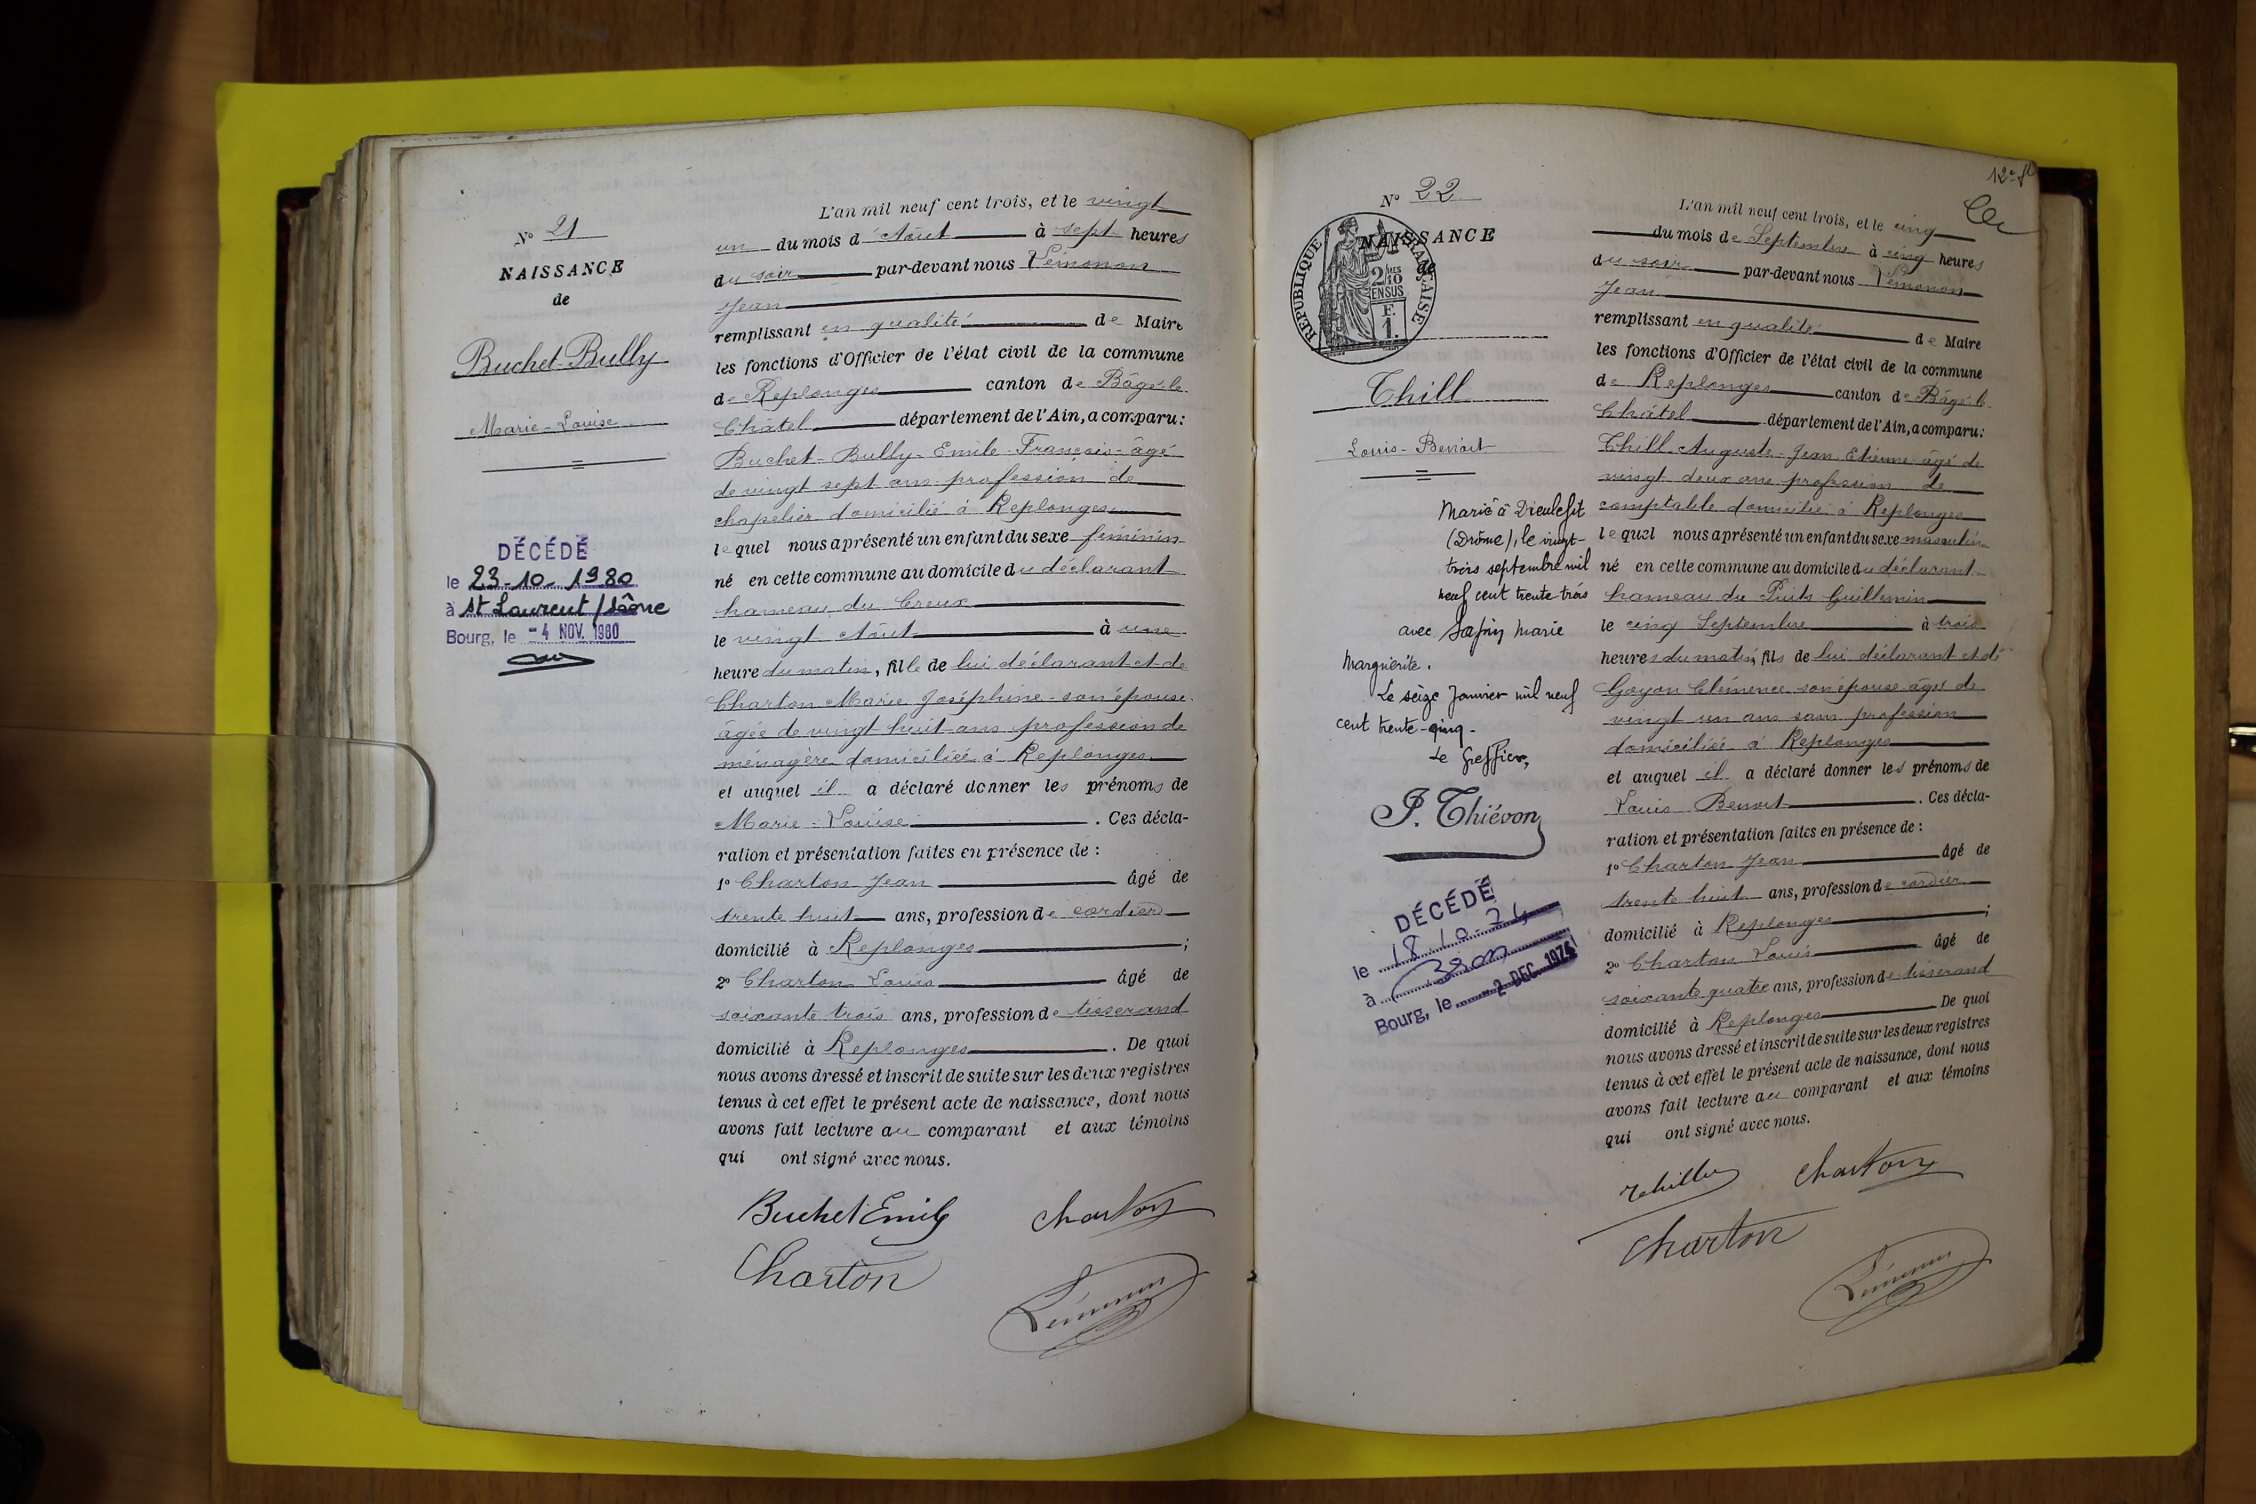 N° 21
NAISSANCE
de
Buchet-Bully
Marie-Louise
DÉCÉDÉ
le 23-10-1980
à St Laurent/Saône
Bourg, le -4 NOV. 1980
L'an mil neuf cent trois, et le vingt
un du mois d'Août à sept heures
du soir par-devant nous Vémonon
Jean
remplissant en qualité de Maire
les fonctions d'Officier de l'état civil de la commune
de Replonges canton de Bâgé-le
Châtel département de l'Ain, a comparu:
Buchet-Bully-Emile-François-âgé
de vingt sept ans profession de
chapelier domicilié à Replonges
lequel nous a présenté un enfant du sexe féminin
né en cette commune au domicile du déclarant
hameau du Creux
le vingt Août à une
heure du matin, fille de lui déclarant et de
Charton Marie Joséphine son épouse
âgée de vingt huit ans profession de
ménagère domiciliée à Replonges
et auquel il a déclaré donner les prénoms de
Marie-Louise . Ces décla-
ration et présentation faites en présence de :
1° Charton Jean âgé de
trente huit ans, profession de cordier
domicilié à Replonges ;
2° Charton Louis âgé de
soixante trois ans, profession de tisserand
domicilié à Replonges . De quoi
nous avons dressé et inscrit de suite sur les deux registres
tenus à cet effet le présent acte de naissance, dont nous
avons fait lecture au comparant et aux témoins
qui ont signé avec nous.
Buchet Emile Charton
Charton
12e f
N° 22
NAISSANCE
de
RÉPUBLIQUE FRANÇAISE
2/10 MES
EN SUS
F.
1.
Thill
Louis-Benoit
Marié à Dieulefit
(Drôme), le vingt-
trois septembre mil
neuf cent trente-trois
avec Marie
Marguerite.
Le seize Janvier mil neuf
cent trente-cinq-
Le Greffier,
P. Thiévon
DÉCÉDÉ
le 18-10-74
à Bron
Bourg, le -2 DEC. 1974
L'an mil neuf cent trois, et le cinq
du mois de Septembre à cinq heures
du soir par-devant nous Vémonon
Jean
remplissant en qualité de Maire
les fonctions d'Officier de l'état civil de la commune
de Replonges canton de Bâgé-le
Châtel département de l'Ain, a comparu:
Thill Auguste Jean Etienne âgé de
vingt deux ans profession de
comptable domicilié à Replonges
lequel nous a présenté un enfant du sexe masculin
né en cette commune au domicile du déclarant
hameau du Puits Guillemin
le cinq Septembre à trois
heures du matin, fils de lui déclarant et de
Goyon Clémence son épouse âgée de
vingt un ans sans profession
domiciliée à Replonges
et auquel il a déclaré donner les prénoms de
Louis Benoit . Ces décla-
ration et présentation faites en présence de :
1° Charton Jean âgé de
trente huit ans, profession de cordier
domicilié à Replonges ;
2° Charton Louis âgé de
soixante quatre ans, profession de tisserand
domicilié à Replonges De quoi
nous avons dressé et inscrit de suite sur les deux registres
tenus à cet effet le présent acte de naissance, dont nous
avons fait lecture au comparant et aux témoins
qui ont signé avec nous.
Charton
Charton